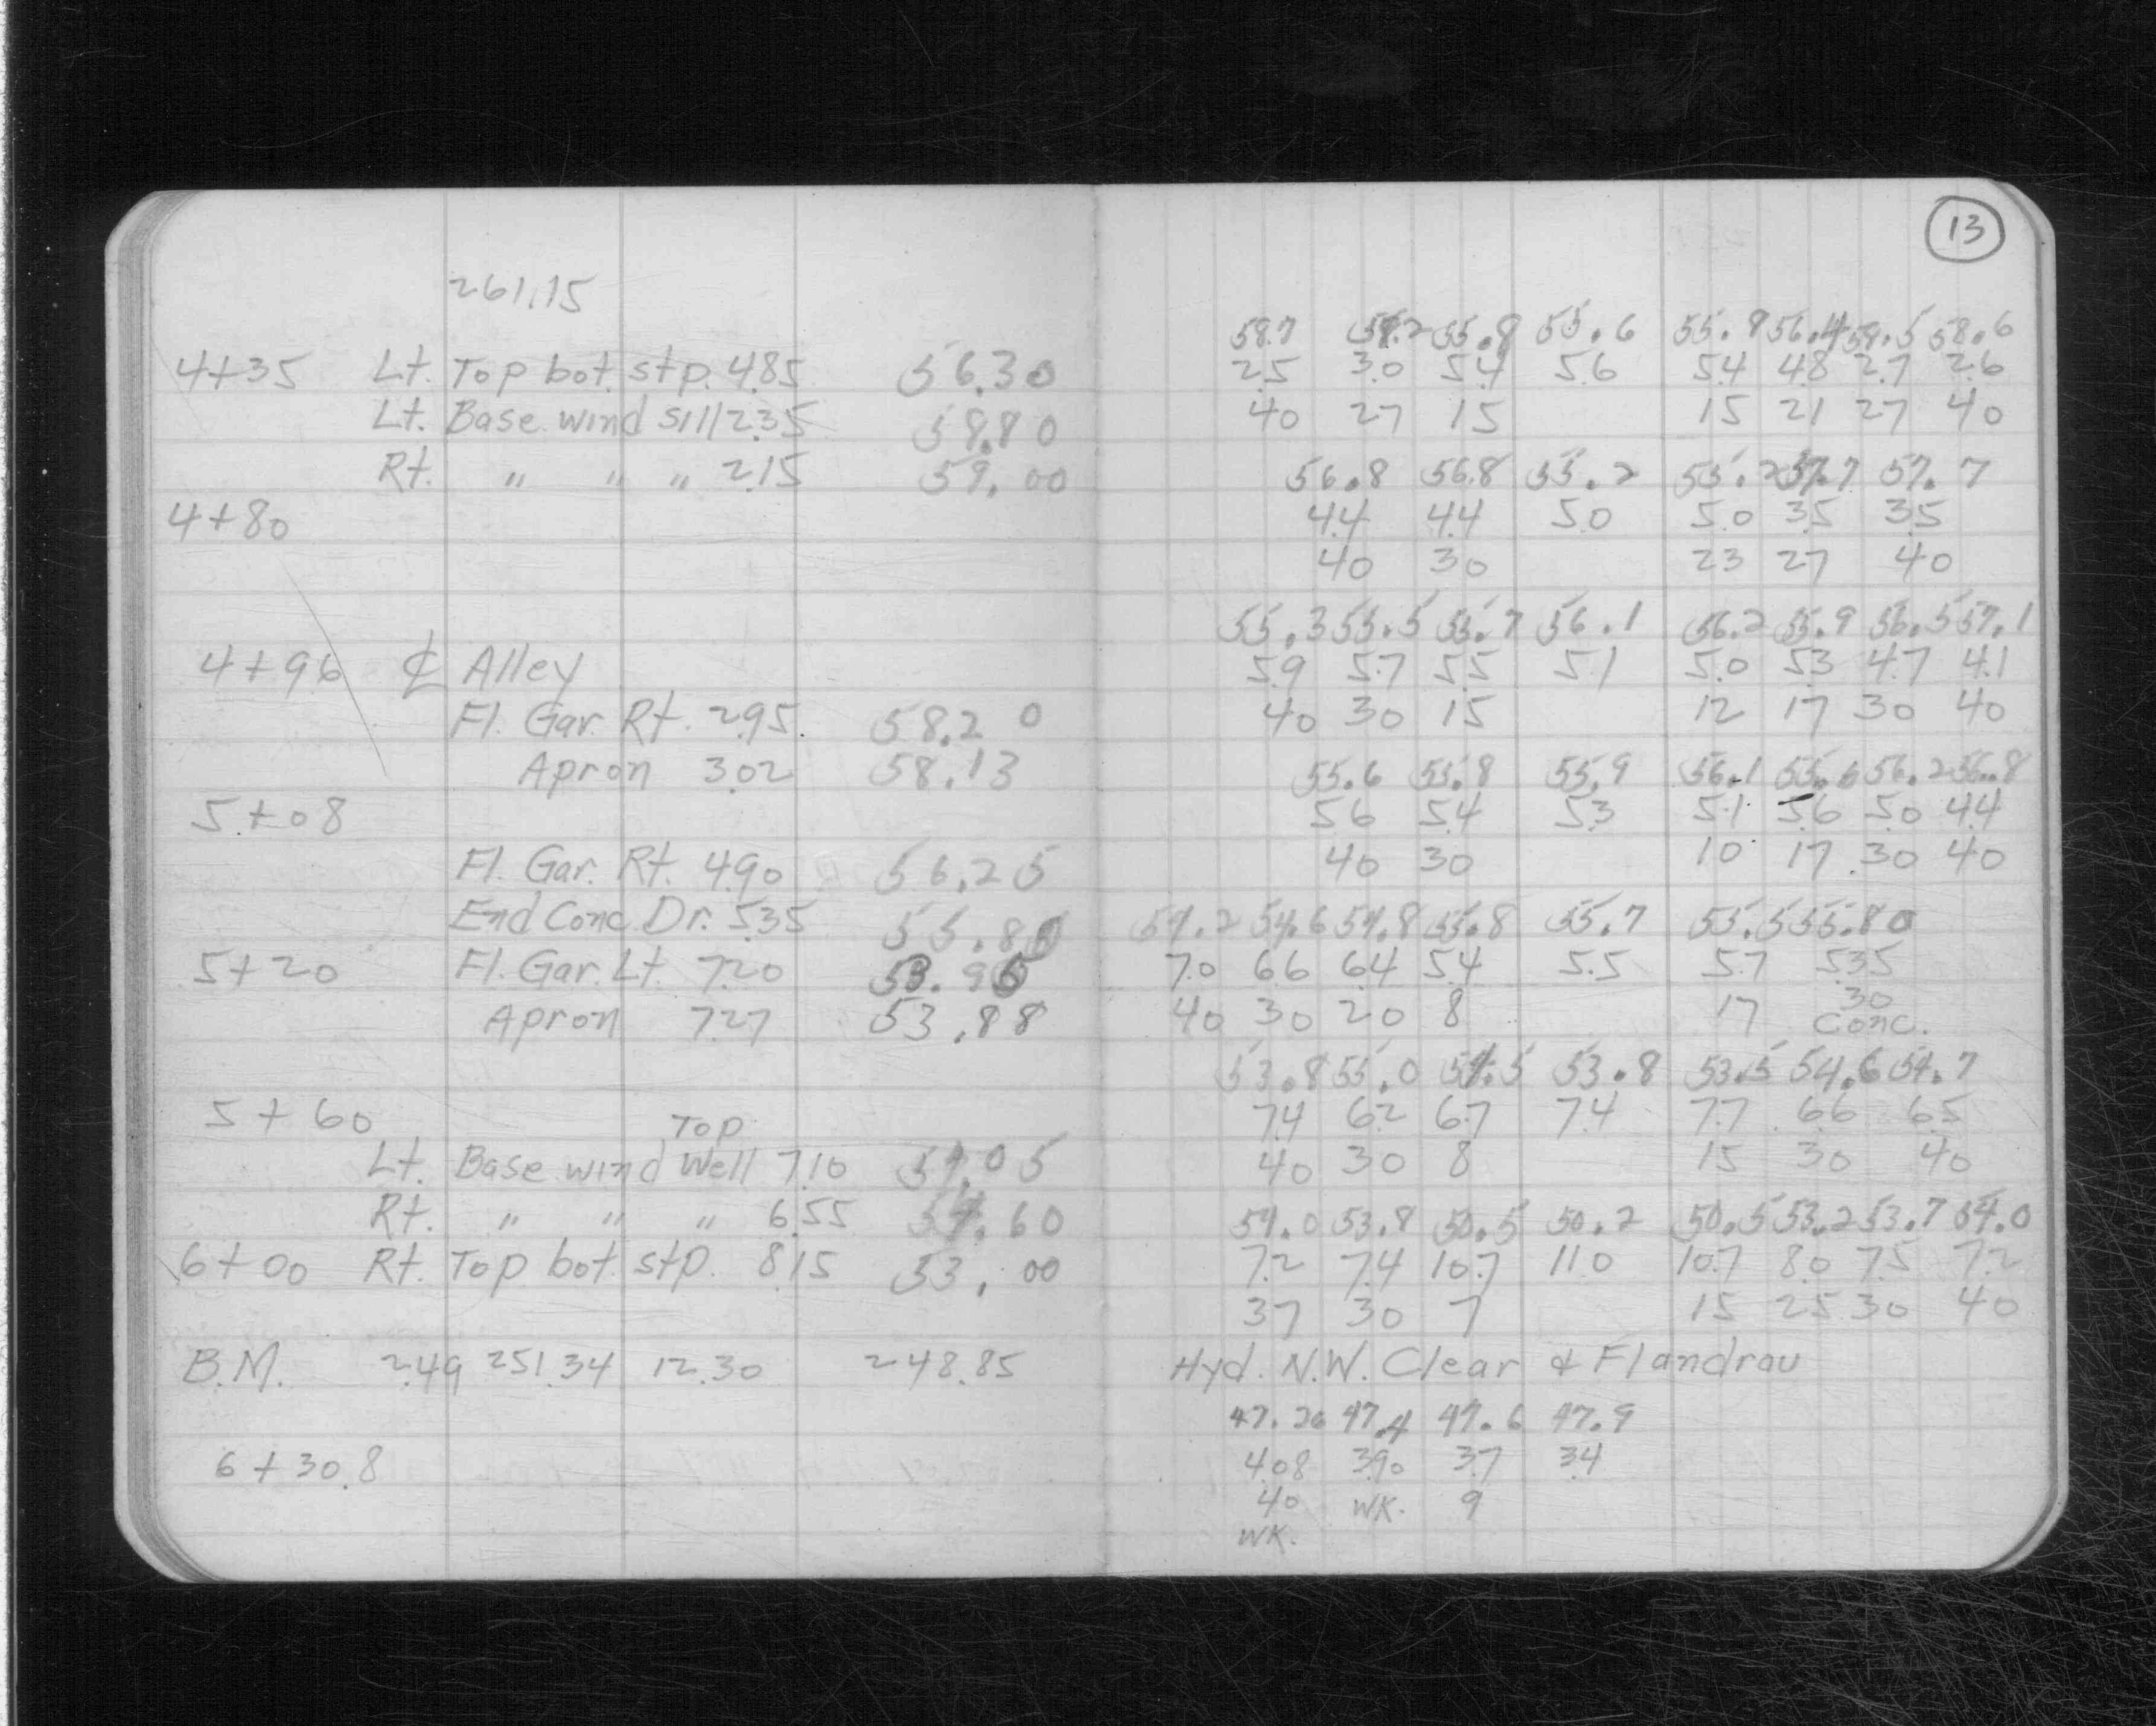 13
261.15
4+35 Lt. Top bot. stp. 4.85 56.30
Lt. Base wind sill 2.35 58.80
Rt. " " " 2.15 59.00
4+80
4+96 ℄ Alley
Fl. Gar. Rt. 2.95 58.20
Apron 3.02 58.13
5+08
Fl. Gar. Rt. 4.90 56.25
End Conc. Dr. 5.35 55.80
5+20 Fl. Gar. Lt. 7.20 53.95
Apron 7.27 53.88
5+60 Top
Lt. Base wind Well 7.10 54.05
Rt. " " " 6.55 54.60
6+00 Rt. Top bot. stp. 8.15 53.00
B.M. 2.49 251.34 12.30 248.85
6+30.8
58.7 58.2 55.8 55.6 55.8 56.4 58.5 58.6
2.5 3.0 5.4 5.6 5.4 4.8 2.7 2.6
40 27 15 15 21 27 40
56.8 56.8 55.2 55.2 57.7 57.7
4.4 4.4 5.0 5.0 3.5 3.5
40 30 23 27 40
55.3 55.5 55.7 56.1 56.2 55.9 56.5 57.1
5.9 5.7 5.5 5.1 5.0 5.3 4.7 4.1
40 30 15 12 17 30 40
55.6 55.8 55.9 56.1 55.6 56.2 56.8
5.6 5.4 5.3 5.1 5.6 5.0 4.4
40 30 10 17 30 40
54.2 54.6 54.8 55.8 55.7 55.5 55.80
7.0 6.6 6.4 5.4 5.5 5.7 5.35
40 30 20 8 17 30
Conc.
53.8 55.0 54.5 53.8 53.5 54.6 54.7
7.4 6.2 6.7 7.4 7.7 6.6 6.5
40 30 8 15 30 40
54.0 53.8 50.5 50.2 50.5 53.2 53.7 54.0
7.2 7.4 10.7 11.0 10.7 8.0 7.5 7.2
37 30 7 15 25 30 40
Hyd. N.W. Clear & Flandrau
47.26 47.4 47.6 47.9
4.08 3.90 3.7 3.4
40 WK. 9
WK.